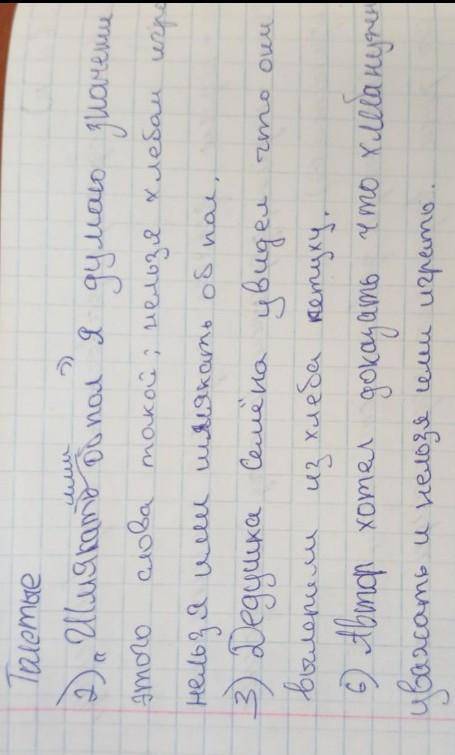 2) "Шмякать ими об пол" Я думаю значени
этого слова такой; нельзя хлебом игра
нельзя ими шмякать об пол.
3) Дедушка Семёна увидел что они
вылепили из хлеба петуху.
6) Автор хотел доказать что хлеба нужн
уважать и нельзя ими играть.